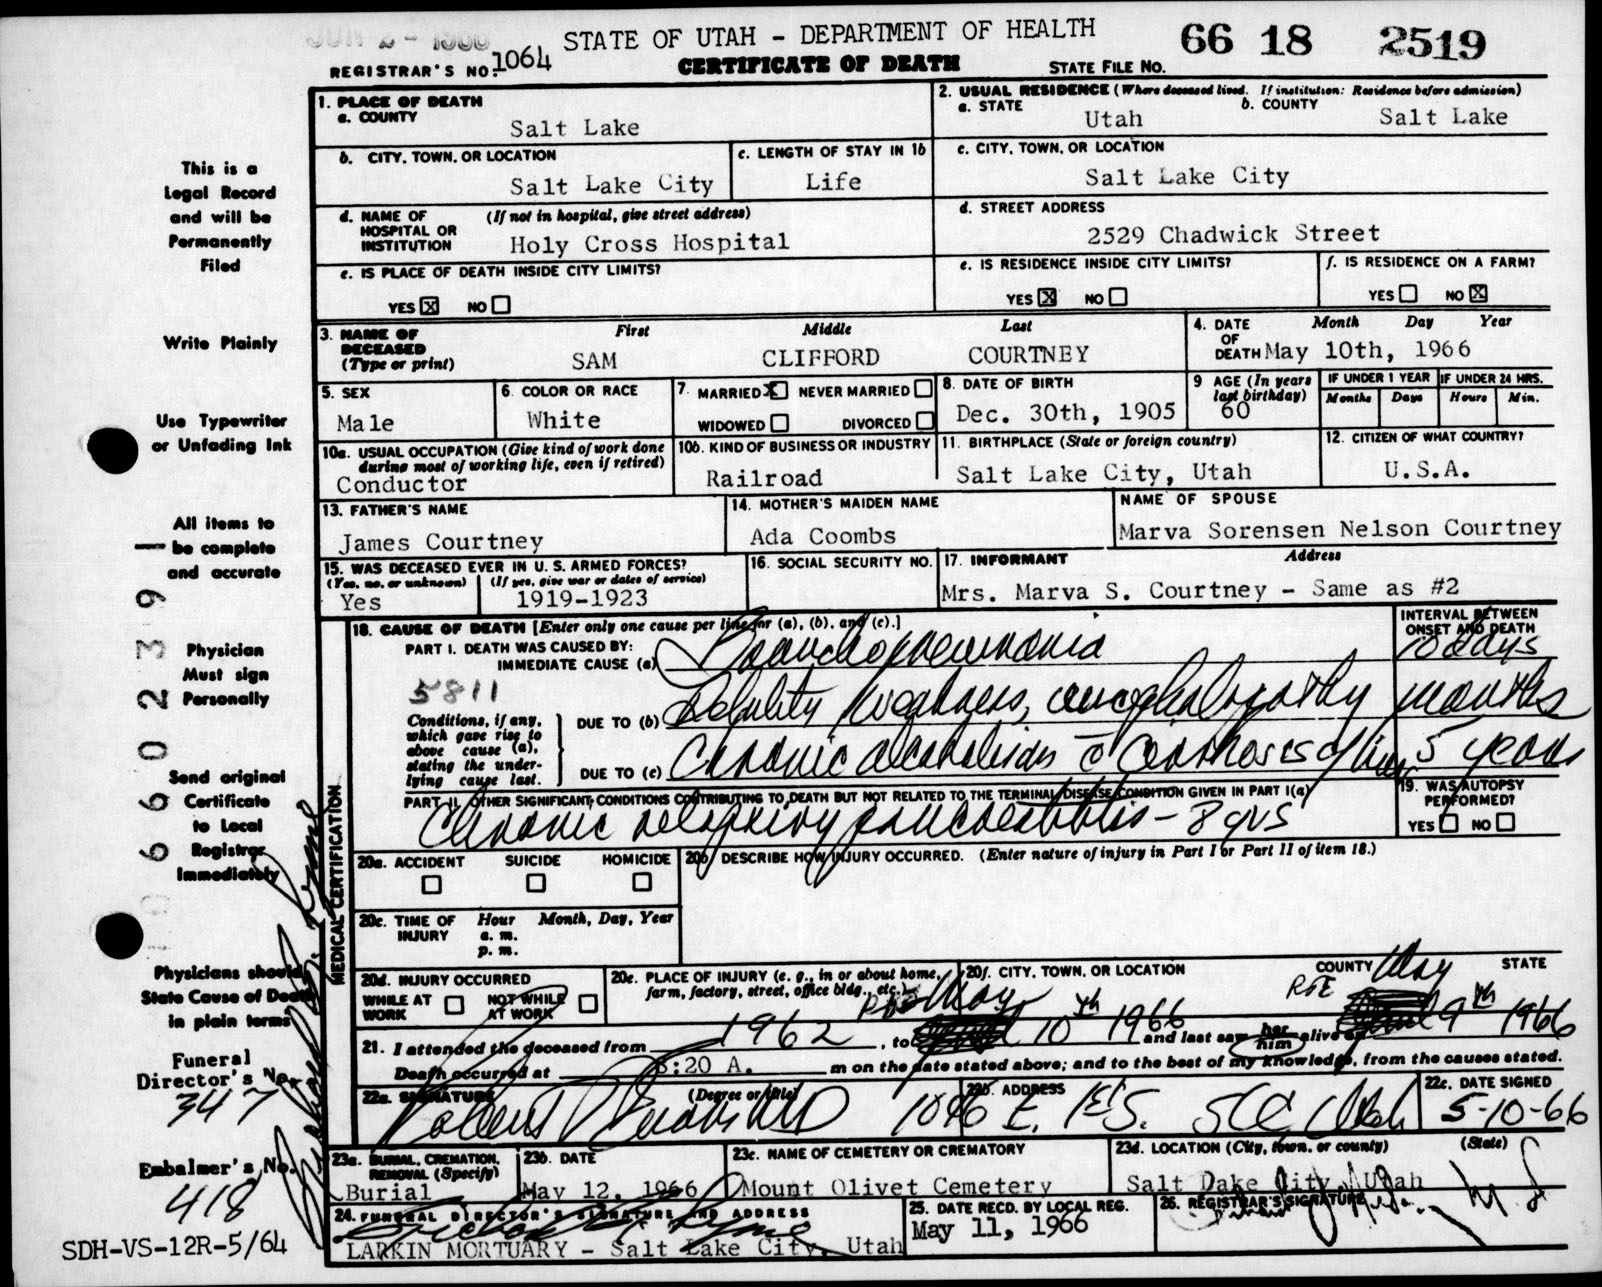 JUN 2 - 1966
STATE OF UTAH - DEPARTMENT OF HEALTH
66 18 2519
REGISTRAR'S NO. 1064
CERTIFICATE OF DEATH
STATE FILE NO.
1. PLACE OF DEATH
a. COUNTY
Salt Lake
2. USUAL RESIDENCE (Where deceased lived. If institution: Residence before admission)
a. STATE
Utah
b. COUNTY
Salt Lake
b. CITY, TOWN, OR LOCATION
Salt Lake City
c. LENGTH OF STAY IN 1b
Life
c. CITY, TOWN, OR LOCATION
Salt Lake City
d. NAME OF HOSPITAL OR INSTITUTION
(If not in hospital, give street address)
Holy Cross Hospital
d. STREET ADDRESS
2529 Chadwick Street
e. IS PLACE OF DEATH INSIDE CITY LIMITS?
YES X NO
e. IS RESIDENCE INSIDE CITY LIMITS?
YES X NO
f. IS RESIDENCE ON A FARM?
YES NO X
3. NAME OF DECEASED
(Type or print)
First Middle Last
SAM CLIFFORD COURTNEY
4. DATE OF DEATH
Month Day Year
May 10th, 1966
5. SEX
Male
6. COLOR OR RACE
White
7. MARRIED X NEVER MARRIED
WIDOWED DIVORCED
8. DATE OF BIRTH
Dec. 30th, 1905
9 AGE (In years last birthday)
60
IF UNDER 1 YEAR
Months Days
IF UNDER 24 HRS.
Hours Min.
10a. USUAL OCCUPATION (Give kind of work done during most of working life, even if retired)
Conductor
10b. KIND OF BUSINESS OR INDUSTRY
Railroad
11. BIRTHPLACE (State or foreign country)
Salt Lake City, Utah
12. CITIZEN OF WHAT COUNTRY?
U.S.A.
13. FATHER'S NAME
James Courtney
14. MOTHER'S MAIDEN NAME
Ada Coombs
NAME OF SPOUSE
Marva Sorensen Nelson Courtney
15. WAS DECEASED EVER IN U. S. ARMED FORCES?
(Yes, no, or unknown) (If yes, give war or dates of service)
Yes 1919-1923
16. SOCIAL SECURITY NO.
17. INFORMANT Address
Mrs. Marva S. Courtney - Same as #2
MEDICAL CERTIFICATION
18. CAUSE OF DEATH [Enter only one cause per line for (a), (b), and (c).]
INTERVAL BETWEEN ONSET AND DEATH
PART I. DEATH WAS CAUSED BY:
IMMEDIATE CAUSE (a) Bronchopneumonia 10 days
5811
Conditions, if any, which gave rise to above cause (a), stating the underlying cause last.
DUE TO (b) Debility weakness, encephalopathy months
DUE TO (c) Chronic alcoholism c̄ Cirrhosis of liver 5 years
PART II. OTHER SIGNIFICANT CONDITIONS CONTRIBUTING TO DEATH BUT NOT RELATED TO THE TERMINAL DISEASE CONDITION GIVEN IN PART I(a)
Chronic relapsing pancreatitis - 8 yrs
19. WAS AUTOPSY PERFORMED?
YES NO
20a. ACCIDENT SUICIDE HOMICIDE
20b DESCRIBE HOW INJURY OCCURRED. (Enter nature of injury in Part I or Part II of item 18.)
20c. TIME OF INJURY
Hour Month, Day, Year
a. m.
p. m.
20d. INJURY OCCURRED
WHILE AT WORK NOT WHILE AT WORK
20e. PLACE OF INJURY (e. g., in or about home, farm, factory, street, office bldg., etc.)
20f. CITY, TOWN, OR LOCATION COUNTY STATE
21. I attended the deceased from 1962, to May 10th 1966 and last saw her him alive on May 9th 1966
Death occurred at :20 A. m on the date stated above; and to the best of my knowledge, from the causes stated.
22a. SIGNATURE (Degree or title)
Robert
22b. ADDRESS
E. 1st S. SLC Utah
22c. DATE SIGNED
5-10-66
23a. BURIAL, CREMATION, REMOVAL (Specify)
Burial
23b. DATE
May 12, 1966
23c. NAME OF CEMETERY OR CREMATORY
Mount Olivet Cemetery
23d. LOCATION (City, town, or county) (State)
Salt Dake City, Utah
24. FUNERAL DIRECTOR'S SIGNATURE AND ADDRESS
LARKIN MORTUARY - Salt Lake City, Utah
25. DATE RECD. BY LOCAL REG.
May 11, 1966
26. REGISTRAR'S SIGNATURE
This is a
Legal Record
and will be
Permanently
Filed
Write Plainly
Use Typewriter
or Unfading Ink
All items to
be complete
and accurate
Physician
Must sign
Personally
Send original
Certificate
to Local
Registrar
Immediately
Physicians should
State Cause of Death
in plain terms
Funeral
Director's No.
347
Embalmer's No.
418
SDH-VS-12R-5/64